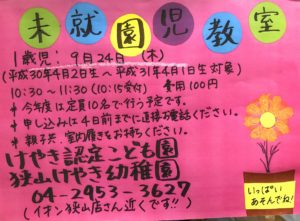 未就園児教室
1歳児：9月24日（木）
（平成30年4月2日生～平成31年4月1日生対象）
10:30～11:30（10:15受付） 費用100円
＊今年度は定員10名で行う予定です。
＊申し込みは4日前までに直接お電話ください。
＊親子共、室内履きをお持ちください。
けやき認定こども園
狭山けやき幼稚園
04-2953-3627
（イオン狭山店さん近くです!!）
いっぱい
あそんでね!